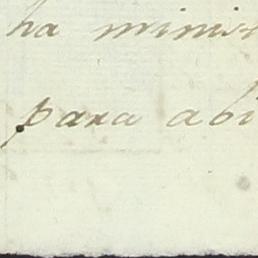 ha minis
para abi